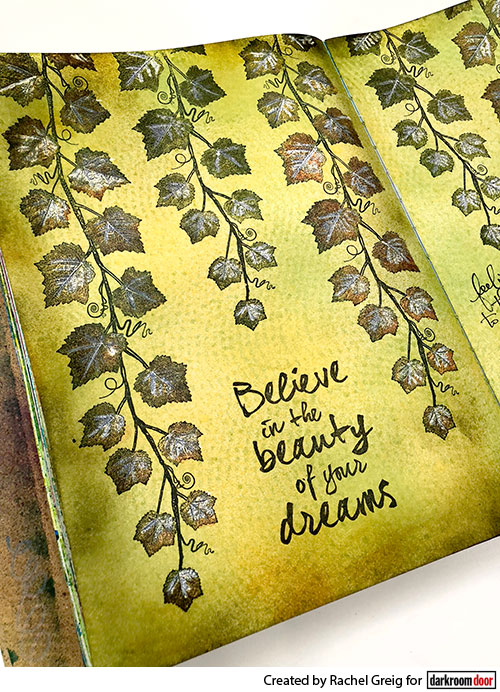 Believe
in the
beauty
of your
dreams
to
Created by Rachel Greig for darkroomdoor